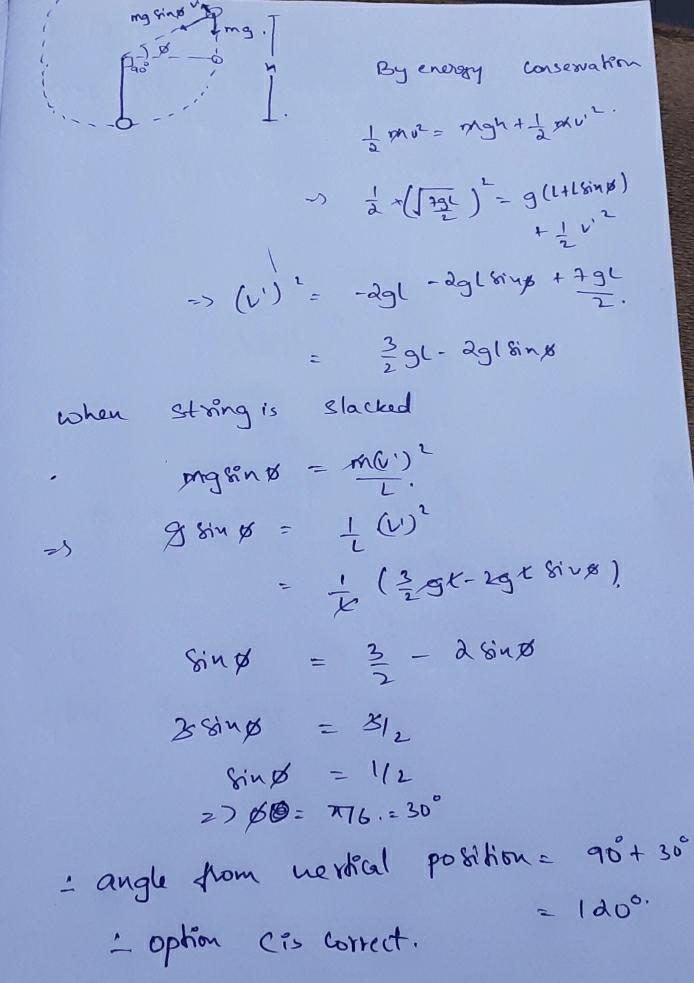 mg sinø v'
mg
ø
90°
h
By energy conservation
1/2 mv² = mgh + 1/2 mv'².
=> 1/2 × (√7gL/2)² = g(L+Lsinø)
+ 1/2 v'²
=> (v')² = -2gl - 2glsinø + 7gL/2.
= 3/2 gL - 2gl sinø
when string is slacked
mg sinø = m(v')²/L.
=> g sinø = 1/L (v')²
= 1/L (3/2 gL - 2gL sinø)
sinø = 3/2 - 2 sinø
3 sinø = 3/2
sinø = 1/2
=> ø = π/6. = 30°
∴ angle from vertical position = 90° + 30°
= 120°.
∴ option C is correct.